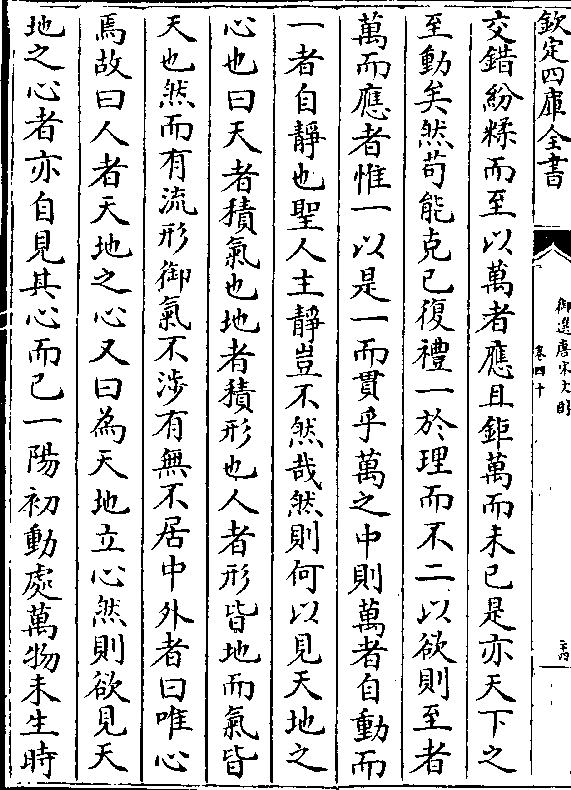 欽定四庫全書
御選唐宋文醇
卷四十
交錯紛糅而至以萬者應且鉅萬而未已是亦天下之
至動矣然苟能克已復禮一於理而不二以欲則至者
萬而應者惟一以是一而貫乎萬之中則萬者自動而
一者自靜也聖人主靜豈不然哉然則何以見天地之
心也曰天者積氣也地者積形也人者形皆地而氣皆
天也然而有流形御氣不涉有無不居中外者曰唯心
焉故曰人者天地之心又曰為天地立心然則欲見天
地之心者亦自見其心而已一陽初動處萬物未生時